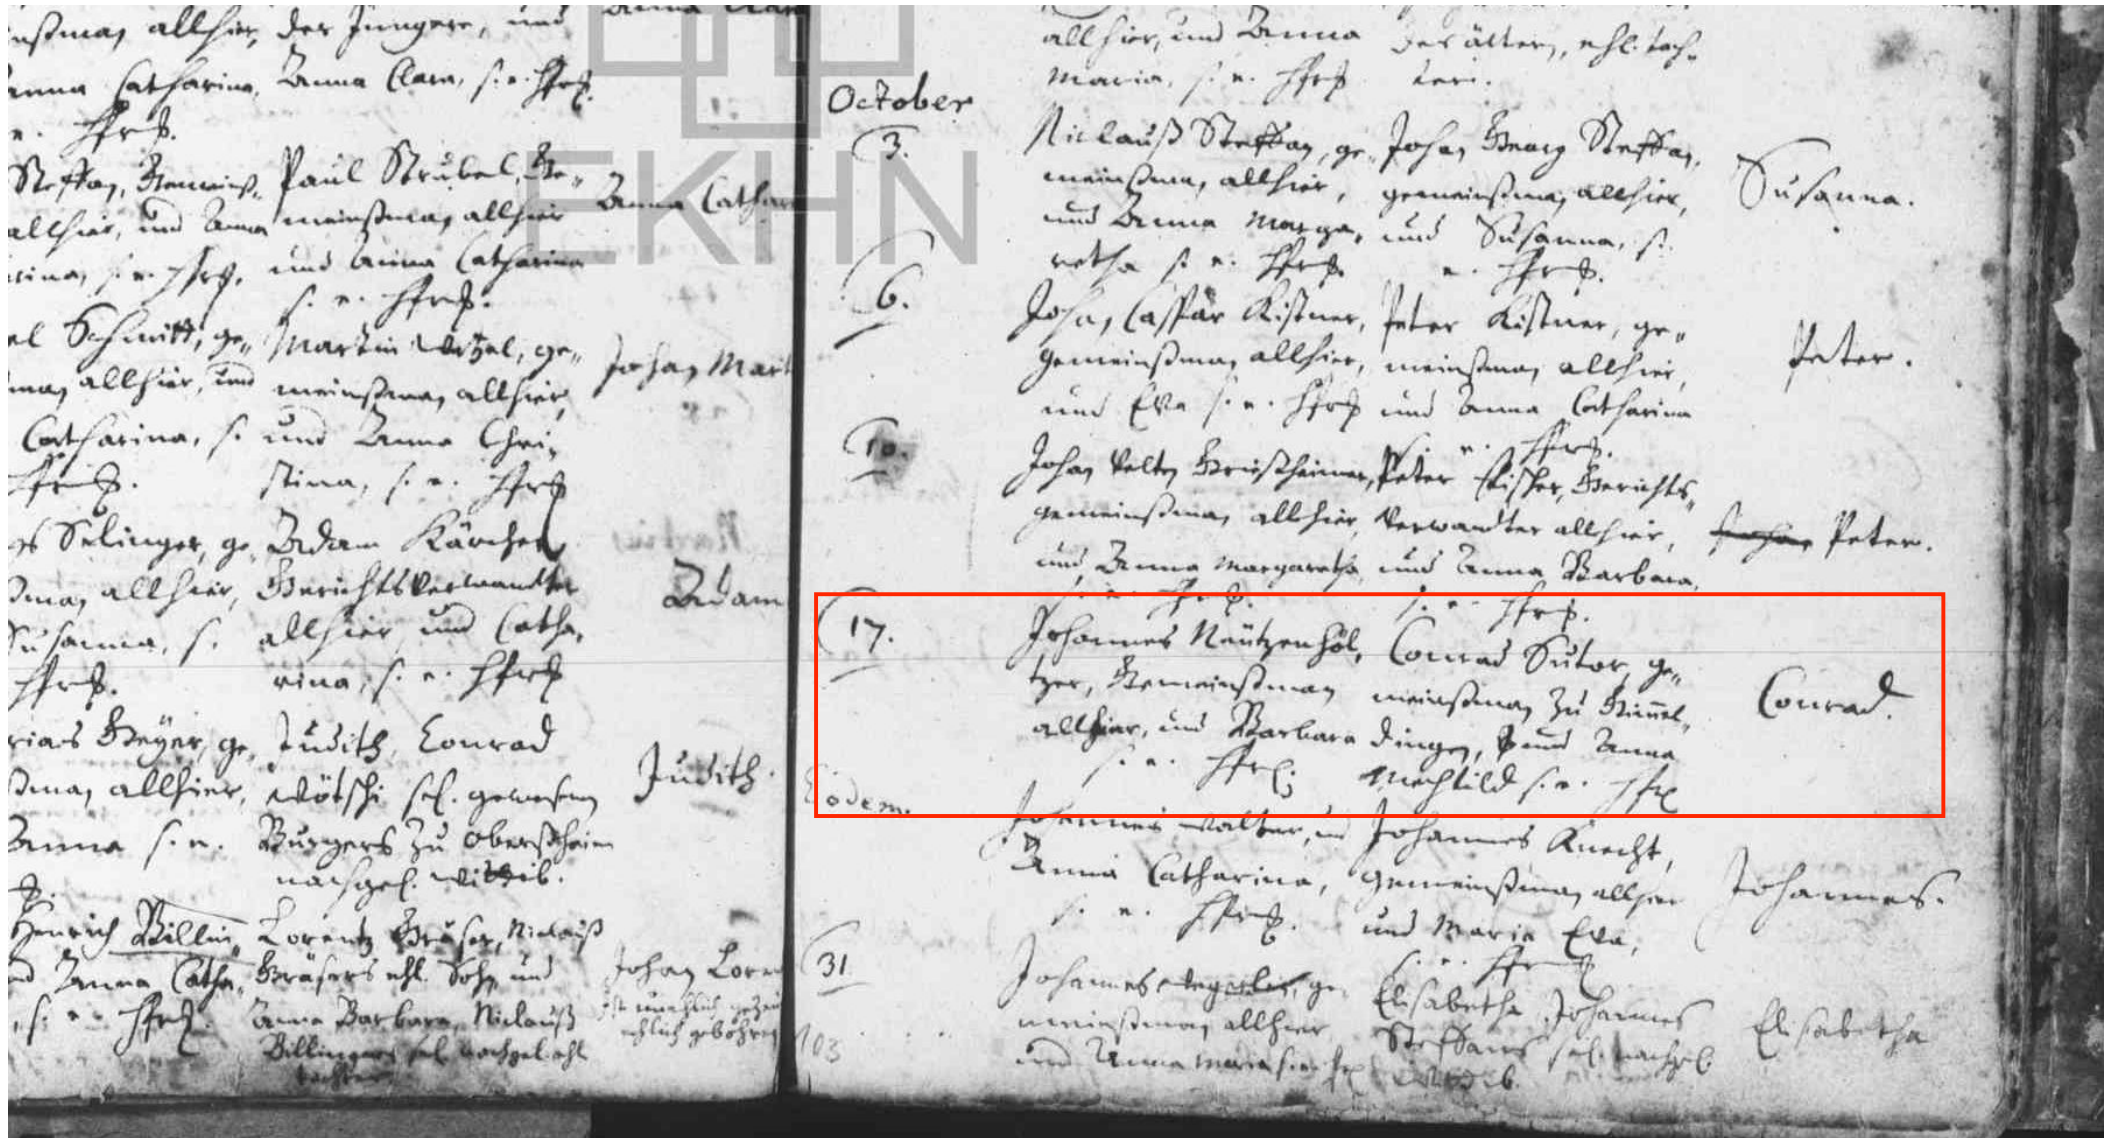 nßman allhier, der Jüngere, und
anna Catharina, Anna Clara, s. e. Hfr.
e. Hfr.
Steffan, Gemeinß- Paul Strubel, Ge-
allhier, und Anna meinßman allhier Anna Cathar
rina, s. e. Hfr. und Anna Catharina
s. e. Hfr.
el Schmitt, ge- Martin Wetzel, ge- Johan Mart
man allhier, und meinßman allhier,
Catharina, s. und Anna Chri-
Hfr. stina, s. e. Hfr.
Selinger, ge- Adam Kärcher
ßman allhier, Gerichtsverwandter Adam
Susanna, s. allhier, und Catha-
Hfr. rina, s. e. Hfr.
rias Geyer, ge- Judith, Conrad Judith.
ßman allhier, sel. gewesenen
Anna s. e. Burgers zu
nachgel. Wittib.
Henrich Billin- Lorentz Gräser, Niclauß Johan Loren
nd Anna Catha- Gräsers ehl. Sohn, und
s. e. Hfr. Anna Barbara, Niclauß
Billingers sel. nachgel. ehl.
tochter
EKHN
allhier, und Anna der ältern, ehl. toch-
Maria, s. e. Hfr. terl.
October
3. Niclauß Steffan, ge- Johan Georg Steffan, Susanna.
meinßman, allhier, gemeinßman, allhier,
und Anna Marga- und Susanna, s.
retha s. e. Hfr. e. Hfr.
6. Johan Caspar Kistner, Peter Kistner, ge- Peter.
gemeinßman allhier, meinßman allhier,
und Eva s. e. Hfr. und Anna Catharina
s. e. Hfr.
10. Johan Velten Griesheimer, Peter Fischer, Gerichts-
gemeinßman allhier, Verwandter allhier, Johan Peter.
und Anna Margaretha und Anna Barbara,
s. e. Hfr. s. e. Hfr.
17. Johannes Näützenhöl- Conrad Sutor, ge- Conrad.
tzer, Gemeinßman meinßman zu Gimel-
allhier, und Barbara dingen, und Anna
s. e. Hfr. Mechtild s. e. Hfr.
Eodem. Johannes Walter, und Johannes Knecht, Johannes.
Anna Catharina, Gemeinßman allhier
s. e. Hfr. und Maria Eva,
s. e. Hfr.
31 Johannes ge- Elisabetha Johannes Elisabetha
meinßman allhier Steffans sel. nachgel.
und Anna Maria s. e. Hfr. Wittib.
103